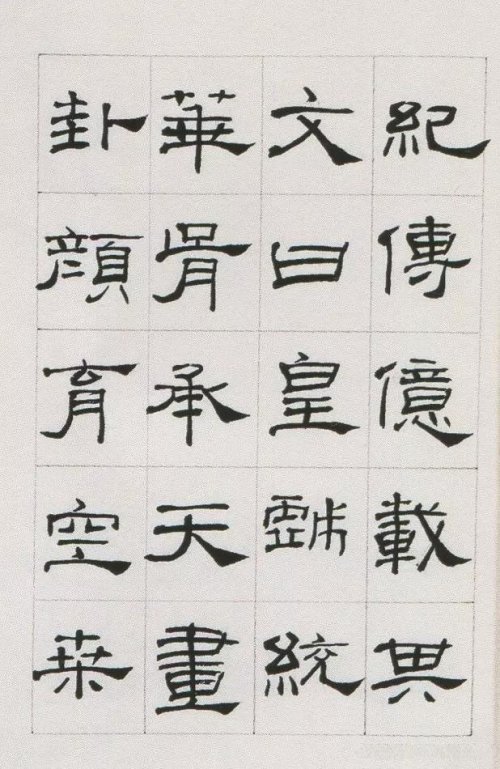 紀傳億載其
文曰皇戲統
華胥承天畫
卦顏育空桑